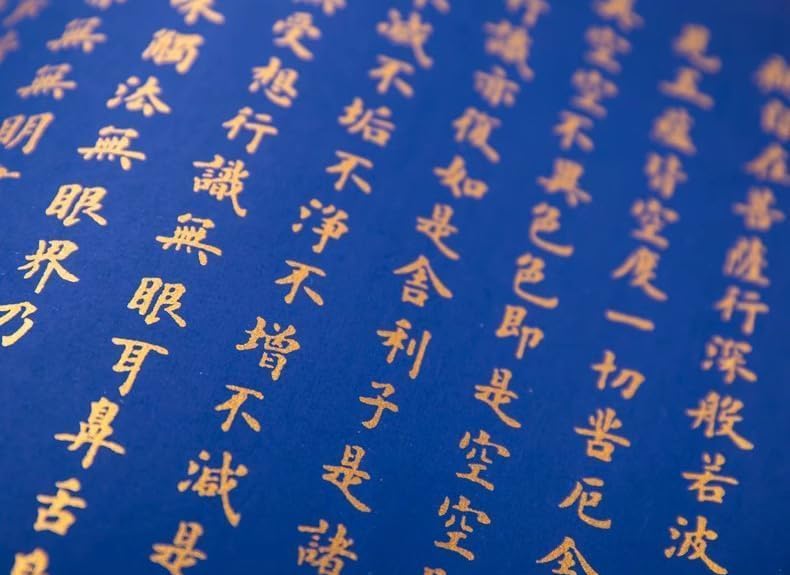 在菩薩行深般若波
見五蘊皆空度一切苦厄舍
異空空不異色色即是空空
行識亦復如是舍利子是諸
滅不垢不淨不增不減是
無受想行識無眼耳鼻舌身
味觸法無眼界乃
無無明